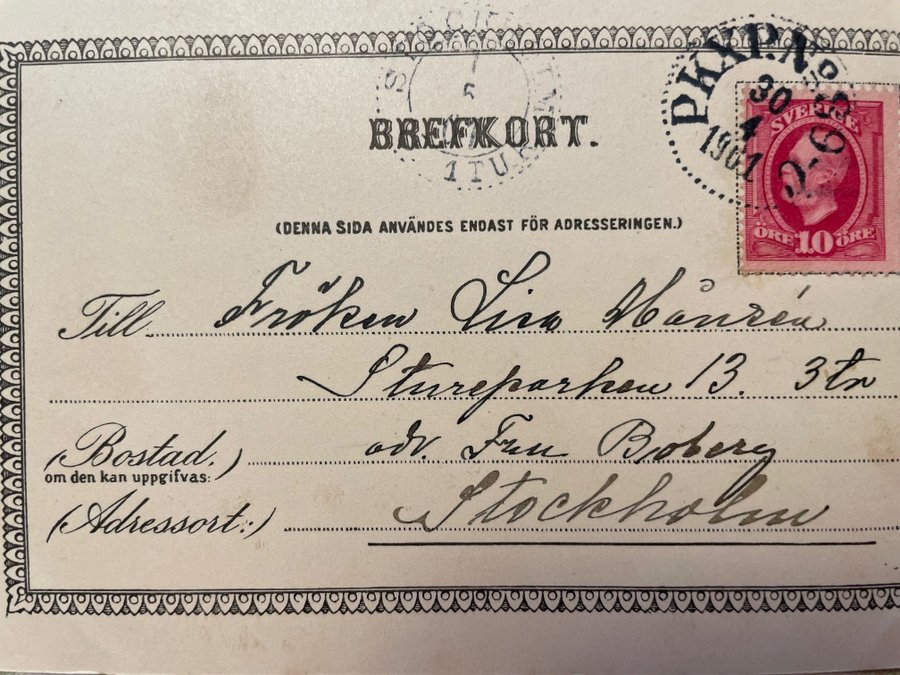 BREFKORT.
(DENNA SIDA ANVÄNDES ENDAST FÖR ADRESSERINGEN.)
PKXP.No
30
4
1901
SVERIGE
ÖRE 10 ÖRE
1 TUR
Till Fröken Lisa
Stureparken 13. 3tr
(Bostad.) adr. Fru Boberg
om den kan uppgifvas:
(Adressort:) Stockholm